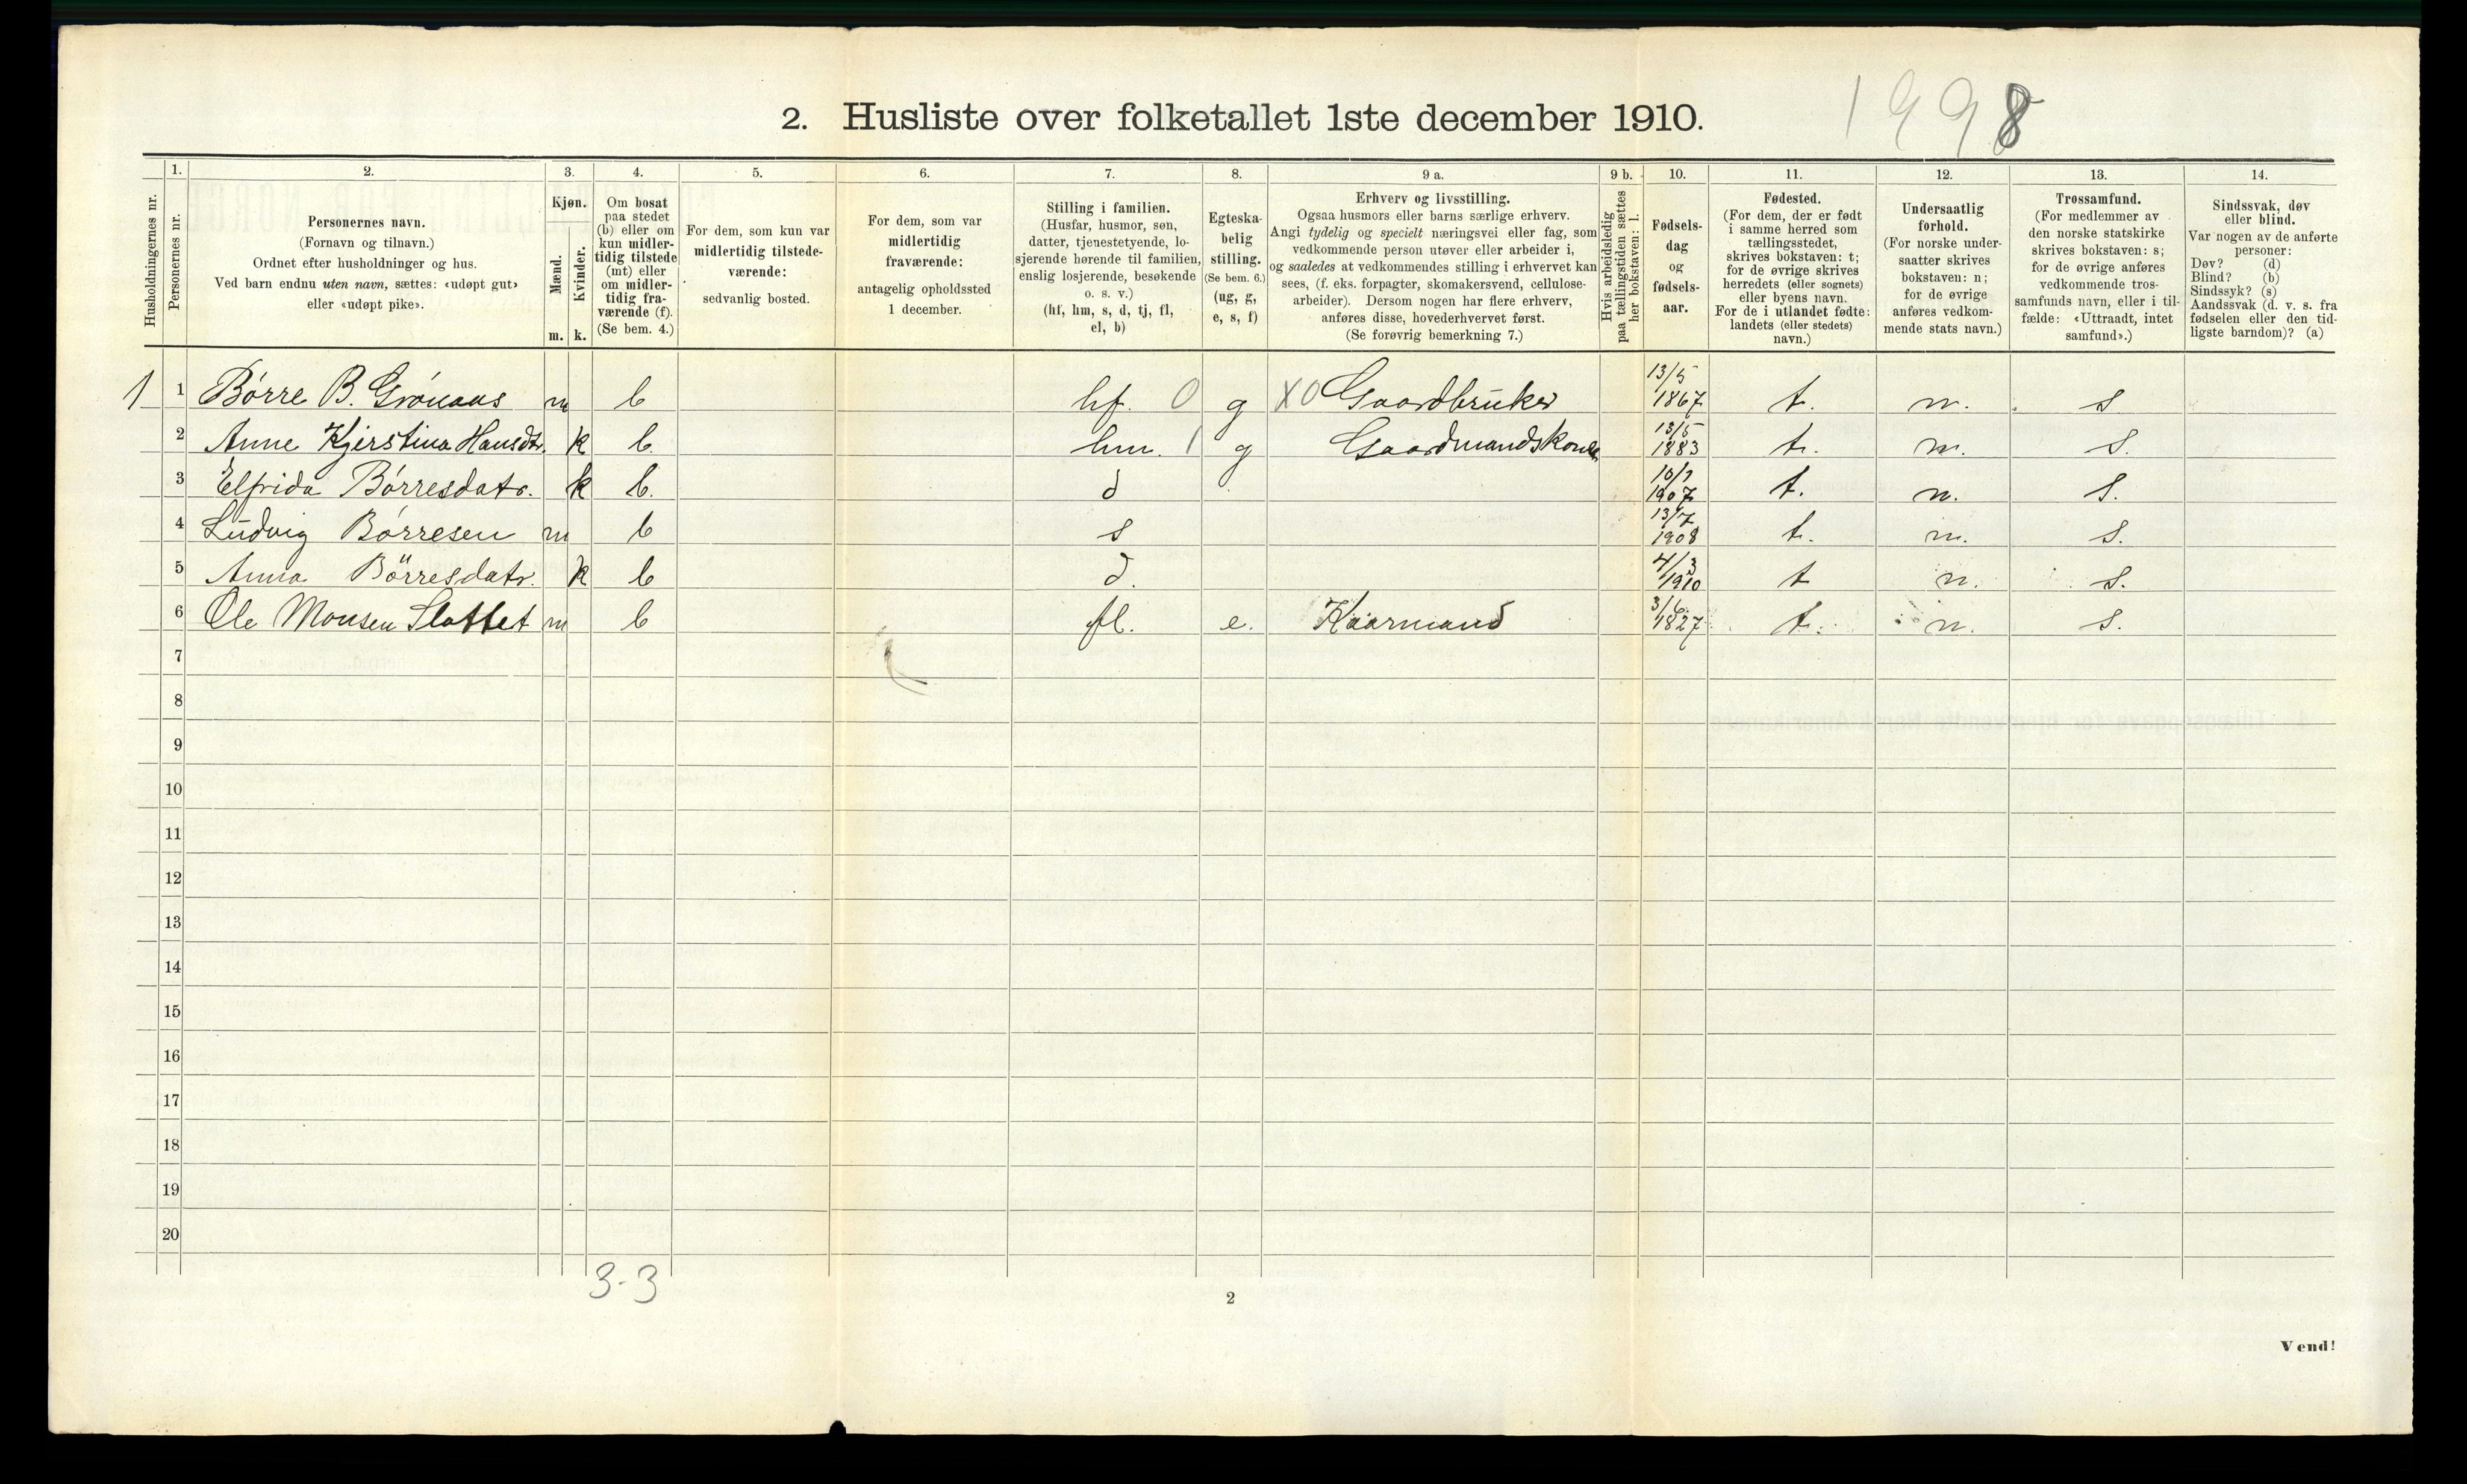 1998
2. Husliste over folketallet 1ste december 1910.
Husholdningernes nr.
1.
Personernes nr.
2.
Personernes navn.
(Fornavn og tilnavn.)
Ordnet efter husholdninger og hus.
Ved barn endnu uten navn, sættes: «udøpt gut»
eller «udøpt pike».
3.
Kjøn.
Mænd.
Kvinder.
m. k.
4.
Om bosat
paa stedet
(b) eller om
kun midler-
tidig tilstede
(mt) eller
om midler-
tidig fra-
værende (f).
(Se bem. 4.)
5.
For dem, som kun var
midlertidig tilstede-
værende:
sedvanlig bosted.
6.
For dem, som var
midlertidig
fraværende:
antagelig opholdssted
1 december.
7.
Stilling i familien.
(Husfar, husmor, søn,
datter, tjenestetyende, lo-
sjerende hørende til familien,
enslig losjerende, besøkende
o. s. v.)
(hf, hm, s, d, tj, fl,
el, b)
8.
Egteska-
belig
stilling.
(Se bem. 6.)
(ug, g,
e, s, f)
9 a.
Erhverv og livsstilling.
Ogsaa husmors eller barns særlige erhverv.
Angi tydelig og specielt næringsvei eller fag, som
vedkommende person utøver eller arbeider i,
og saaledes at vedkommendes stilling i erhvervet kan
sees, (f. eks. forpagter, skomakersvend, cellulose-
arbeider). Dersom nogen har flere erhverv,
anføres disse, hovederhvervet først.
(Se forøvrig bemerkning 7.)
9 b.
Hvis arbeidsledig
paa tællingstiden sættes
her bokstaven: l.
10.
Fødsels-
dag
og
fødsels-
aar.
11.
Fødested.
(For dem, der er født
i samme herred som
tællingsstedet,
skrives bokstaven: t;
for de øvrige skrives
herredets (eller sognets)
eller byens navn.
For de i utlandet fødte:
landets (eller stedets)
navn.)
12.
Undersaatlig
forhold.
(For norske under-
saatter skrives
bokstaven: n;
for de øvrige
anføres vedkom-
mende stats navn.)
13.
Trossamfund.
(For medlemmer av
den norske statskirke
skrives bokstaven: s;
for de øvrige anføres
vedkommende tros-
samfunds navn, eller i til-
fælde: «Uttraadt, intet
samfund».)
14.
Sindssvak, døv
eller blind.
Var nogen av de anførte
personer:
Døv? (d)
Blind? (b)
Sindssyk? (s)
Aandssvak (d. v. s. fra
fødselen eller den tid-
ligste barndom)? (a)
1 1 Børre B. Grónaas m b hf. 0 g X0 Gaardbruker 13/5 1867 t. n. s
2 Anne Kjerstina Hansdtr. k b. hm. 1 g Gaardmandskone 13/5 1883 t. n. s.
3 Elfrida Børresdatr. k b. d 10/1 1907 t. n. s.
4 Ludvig Børresen m b s 13/7 1908 t. n. s.
5 Anna Börresdatr. k b d. 4/3 1910 t n. s.
6 Ole Monsen Slattet m b fl. e. Kaarmand 3/6 1827 t. n. s.
7
8
9
10
11
12
13
14
15
16
17
18
19
20
3-3
2
Vend!